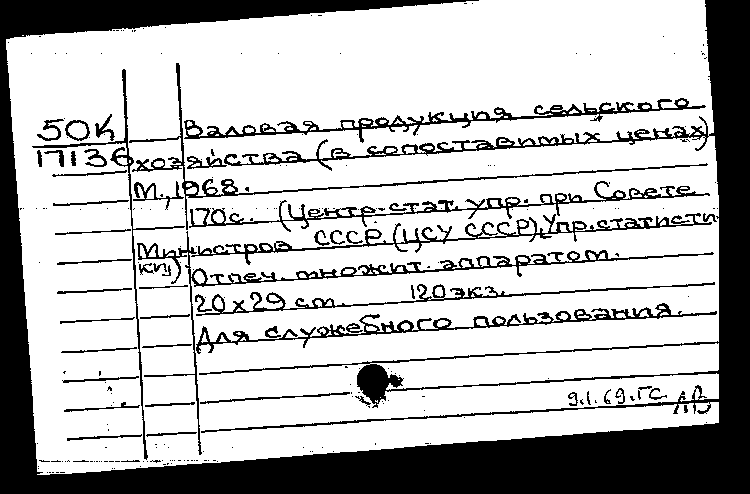 50К Валовая продукция сельского
17136 хозяйства (в сопоставимых ценах)
М., 1968.
170с. (Центр. стат. упр. при Совете
Министров СССР. (ЦСУ СССР), Упр. статисти
ки))
Отпеч. множит. аппаратом.
20х29 см. 120 экз.
Для служебного пользования.
9.1.69.ГС.